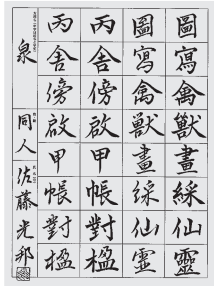 圖寫禽獸畫綵仙靈
圖寫禽獸畫綵仙靈
丙舍傍啟甲帳對楹
丙舍傍啟甲帳對楹
泉
同人
佐藤光邦